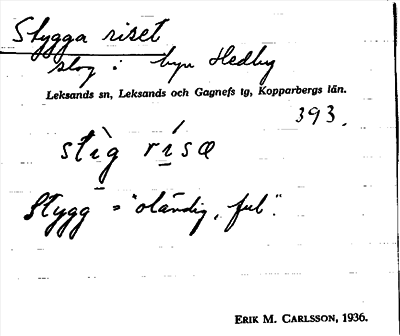 Stygga riset
skog i byn Hedby
Leksands sn, Leksands och Gagnefs tg, Kopparbergs län.
393.
stìg rísæ
Stygg = "oländig, ful".
ERIK M. CARLSSON, 1936.